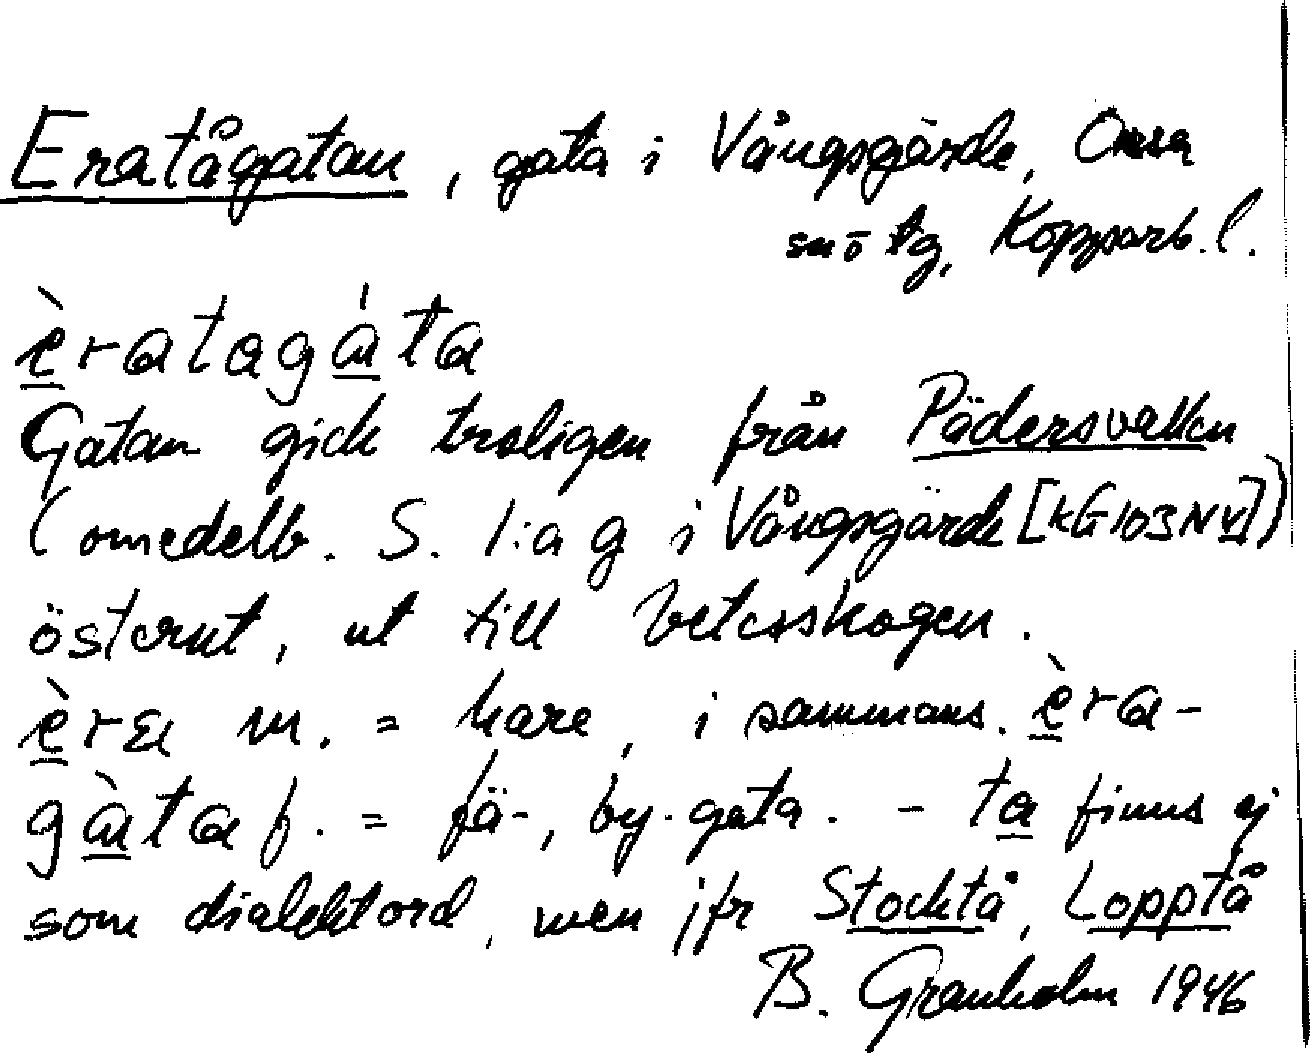 Eratågatan, gata i Vångsgärde, Orsa
snö tg, Kopparb. l.
èratagáta
Gatan gick troligen från Pädersvallen
(omedelb. S. l:a g i Vångsgärde [KG 103 NV])
österut, ut till betesskogen.
èra m. = hare, i sammans. èra-
gàta f. = fä-, by-gata. - ta finns ej
som dialektord, men jfr Stocktå, Lopptå
B. Granholm 1946